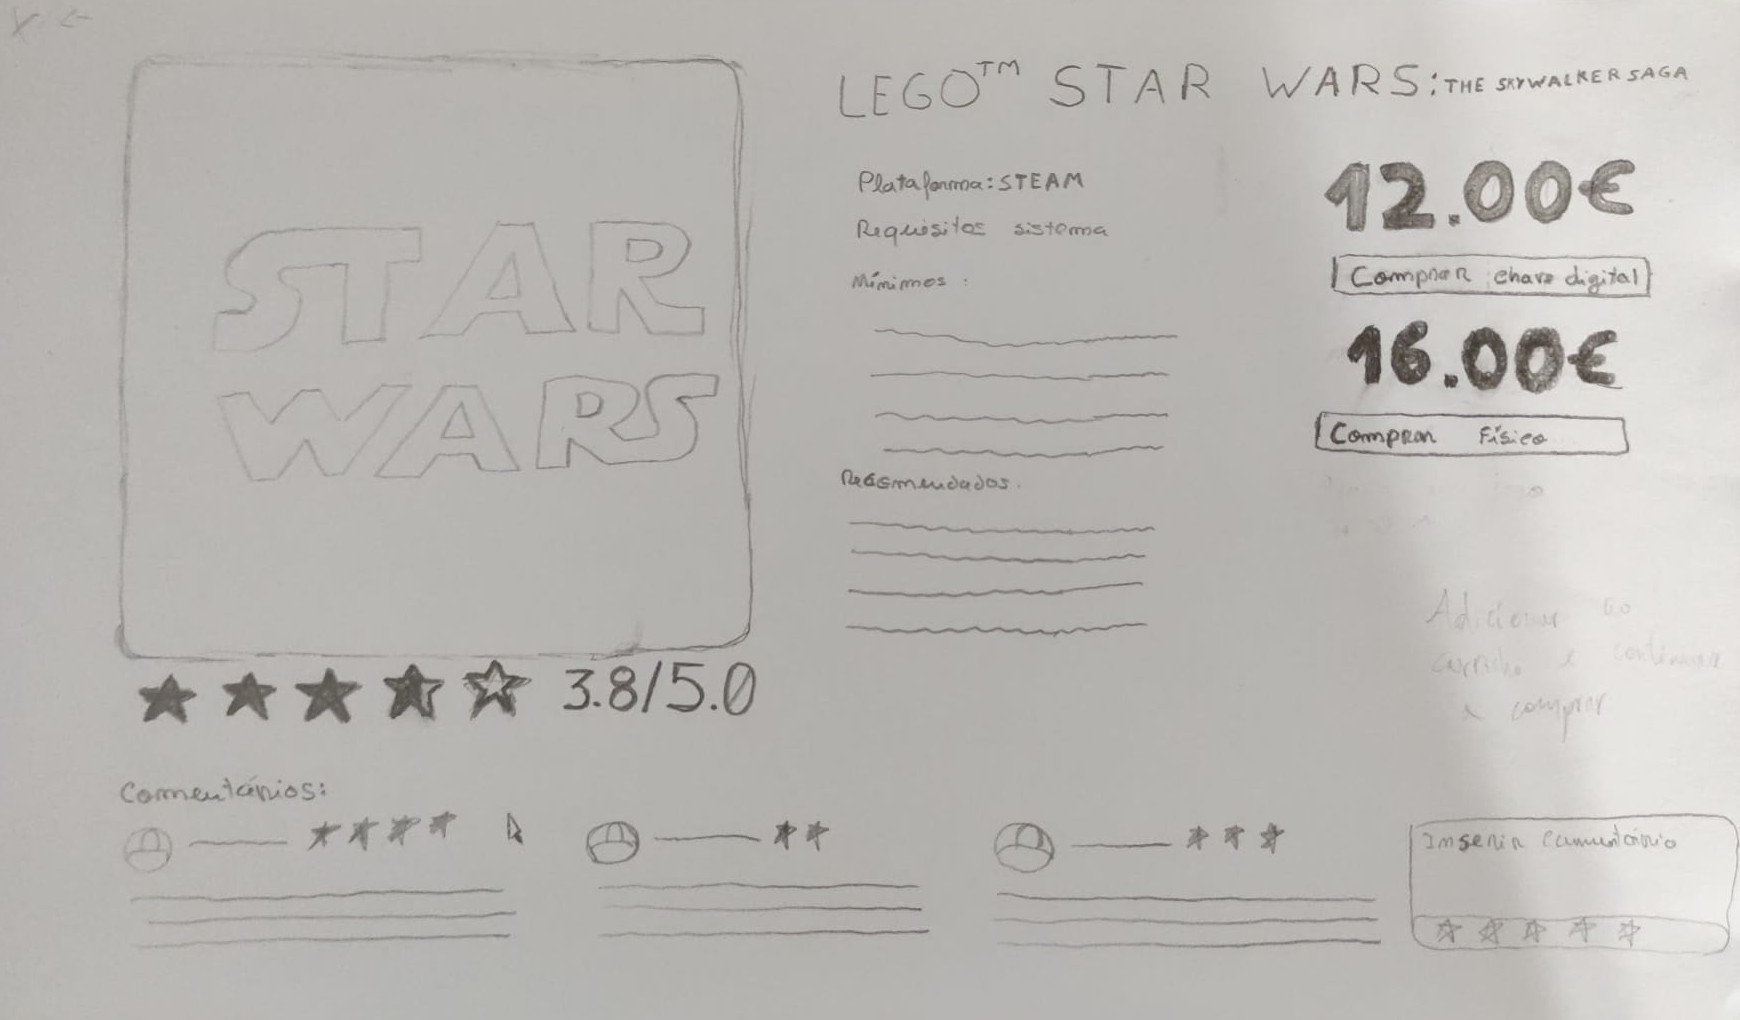 LEGO™ STAR WARS: THE SKYWALKER SAGA
STAR
WARS
Plataforma: STEAM
Requisitos sistema
Mínimos :
Recomendados.
12.00€
Comprar chave digital
16.00€
Comprar Físico
Adicionar ao
carrinho e continuar
a comprar
3.8/5.0
Comentários:
Inserir comentário